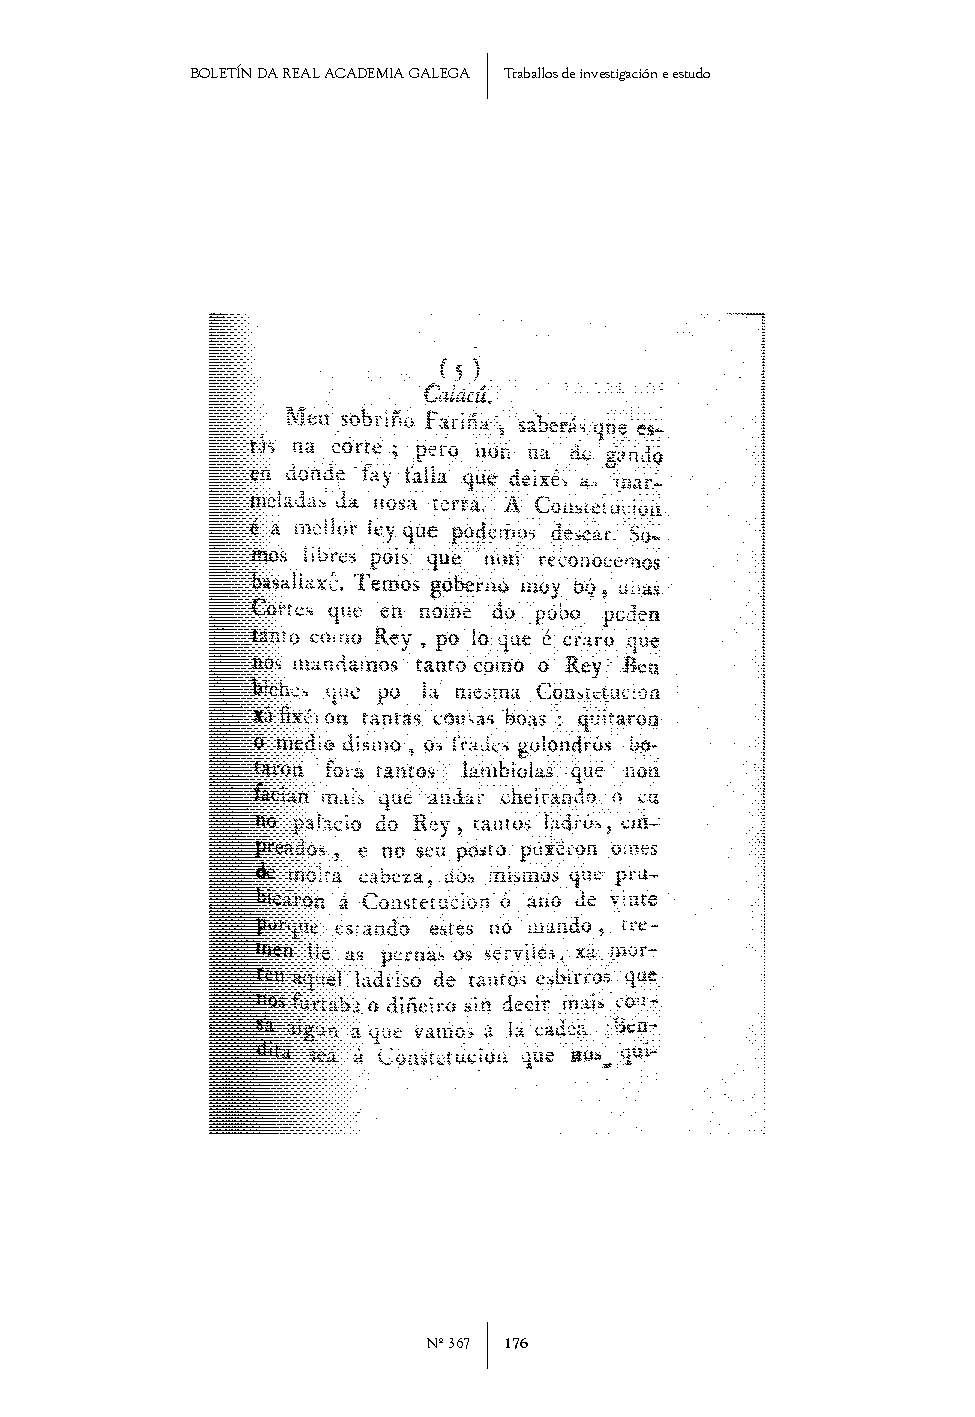 BOLETÍN DA REAL ACADEMIA GALEGA
Traballos de investigación e estudo
( 5 )
Calacú.
Meu sobriño Fariña, saberás que es-
tás na corte; pero non na do gando
en donde fay falla que deixés as mar-
meladas da nosa terra. A Constetucion
é a mellor ley que podemos desear. So-
mos libres pois que non reconocemos
basallaxé. Temos goberno moy bó, unas
Cortes que en nome do pobo poden
tanto como Rey, po lo que é craro que
nos mandamos tanto como o Rey. Ben
biches que po la mesma Constetucion
xa fixéron tantas cousas boas: quitaron
o medio dismo, os frades golondrós bo-
taron fora tantos lambiolas que non
facian mais que andar cheirando o cu
no palacio do Rey, tantos ladros, em-
preados, e no seu posto puxéron omes
de moita cabeza, dos mismos que pru-
bicaron á Constetucion ó ano de vinte
porque estando estes no mando, tre-
men lle as pernas os serviles, xa mor-
ren aquel ladriso de tantos esbirros que
nos furtaba o diñeiro sin decir mais cou-
sa algun a que vamos a la cadea. Ben-
dita sea á Constetucion que nos qui-
Nº 367
176